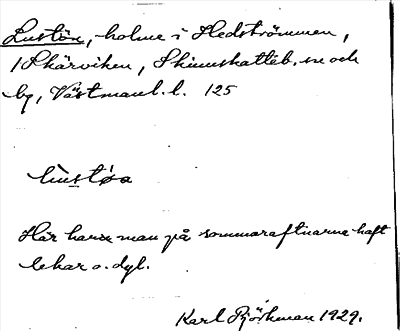 Lustön, holme i Hedströmmen,
i Skärviken, Skinnskatteb. sn och
by, Västmanl. l. 125
lùstö́a
Här hade man på sommaraftnarna haft
lekar o. dyl.
Karl Björkman 1929.